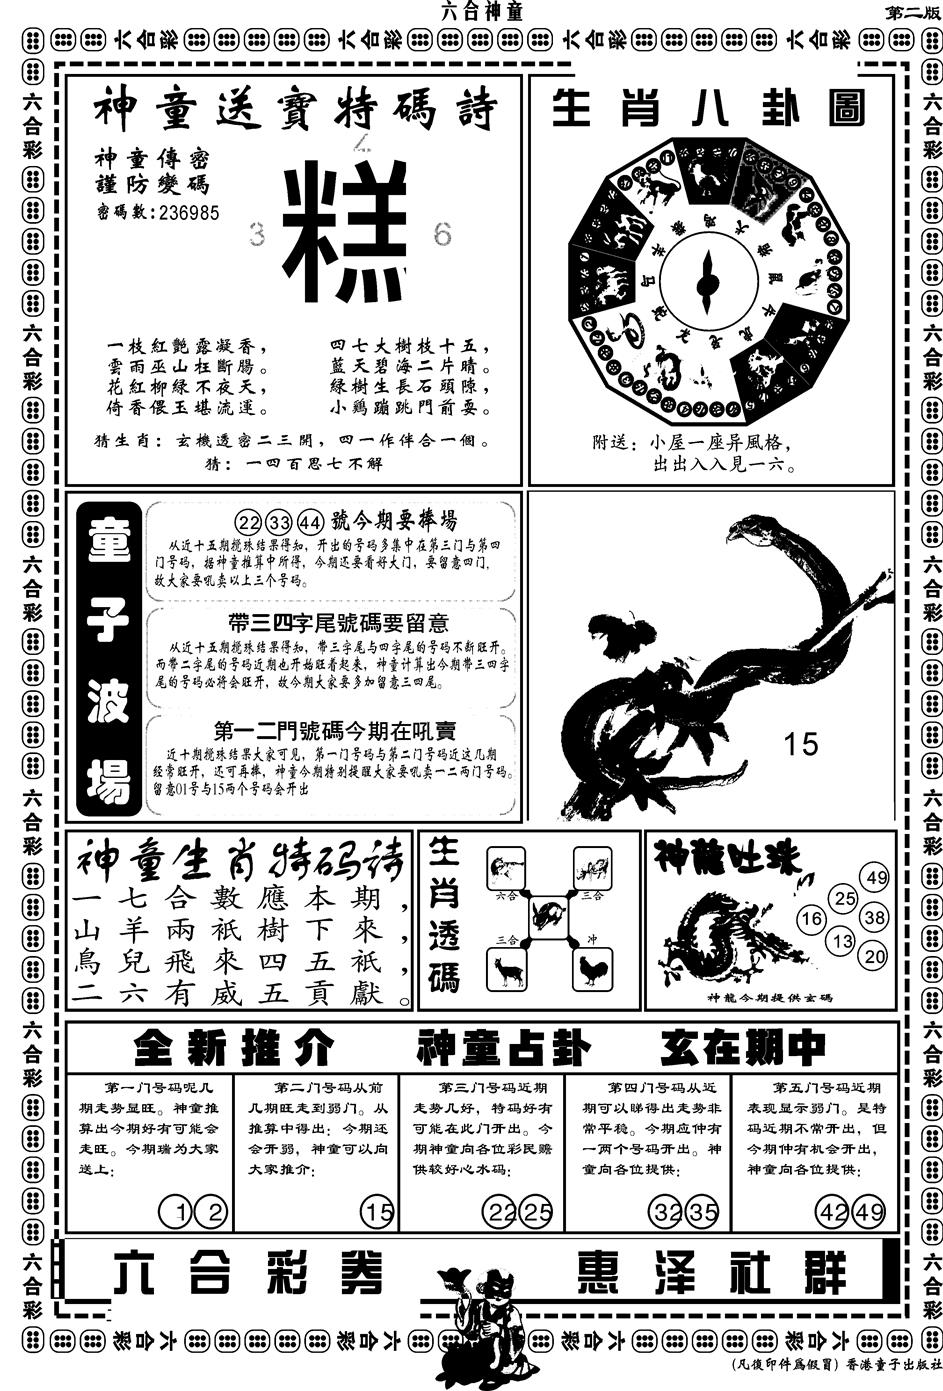 六合神童
第二版
六合彩 六合彩 六合彩 六合彩
神童送寶特碼詩
神童傳密
謹防變碼
密碼數:236985
糕
3
6
一枝紅艷露凝香，
雲雨巫山枉斷腸。
花紅柳綠不夜天，
倚香偎玉堪流連。
四七大樹枝十五，
藍天碧海二片晴。
綠樹生長石頭陳，
小鷄蹦跳門前耍。
猜生肖：玄機透密二三開，四一作伴合一個。
猜：一四百思七不解
生肖八卦圖
附送：小屋一座异風格，
出出入入見一六。
童子波場
22 33 44 號今期要捧場
从近十五期搅珠结果得知，开出的号码多集中在第三门与第四
门号码，据神童推算中所得，今期还要看好大门，要留意四门，
故大家要吼卖以上三个号码。
帶三四字尾號碼要留意
从近十五期搅珠结果得知，带三字尾与四字尾的号码不断旺开。
而带二字尾的号码近期也开始旺看起来，神童计算出今期带三四字
尾的号码必将会旺开，故今期大家要多加留意三四尾。
第一二門號碼今期在吼賣
近十期搅珠结果大家可见，第一门号码与第二门号码近这几期
经常旺开，还可再捧，神童今期特别提醒大家要吼卖一二两门号码。
留意01号与15两个号码会开出
15
神童生肖特码诗
一七合數應本期，
山羊兩衹樹下來，
鳥兒飛來四五衹，
二六有威五貢獻。
生肖透碼
六合 三合
三合 冲
神龍吐珠
49
25
16 38
13
20
神龍今期提供玄碼
全新推介 神童占卦 玄在期中
第一门号码呢几
期走势显旺。神童推
算出今期好有可能会
走旺。今期瑞为大家
送上：
1 2
第二门号码从前
几期旺走到弱门。从
推算中得出：今期还
会开弱，神童可以向
大家推介：
15
第三门号码近期
走势几好，特码好有
可能在此门开出。今
期神童向各位彩民赠
供较好心水码：
22 25
第四门号码从近
期可以睇得出走势非
常平稳。今期应仲有
一两个号码开出。神
童向各位提供：
32 35
第五门号码近期
表现显示弱门。是特
码近期不常开出，但
今期仲有机会开出，
神童向各位提供：
42 49
六合彩券 惠泽社群
六合彩 六合彩 六合彩 六合彩
(凡復印件爲假冒) 香港童子出版社